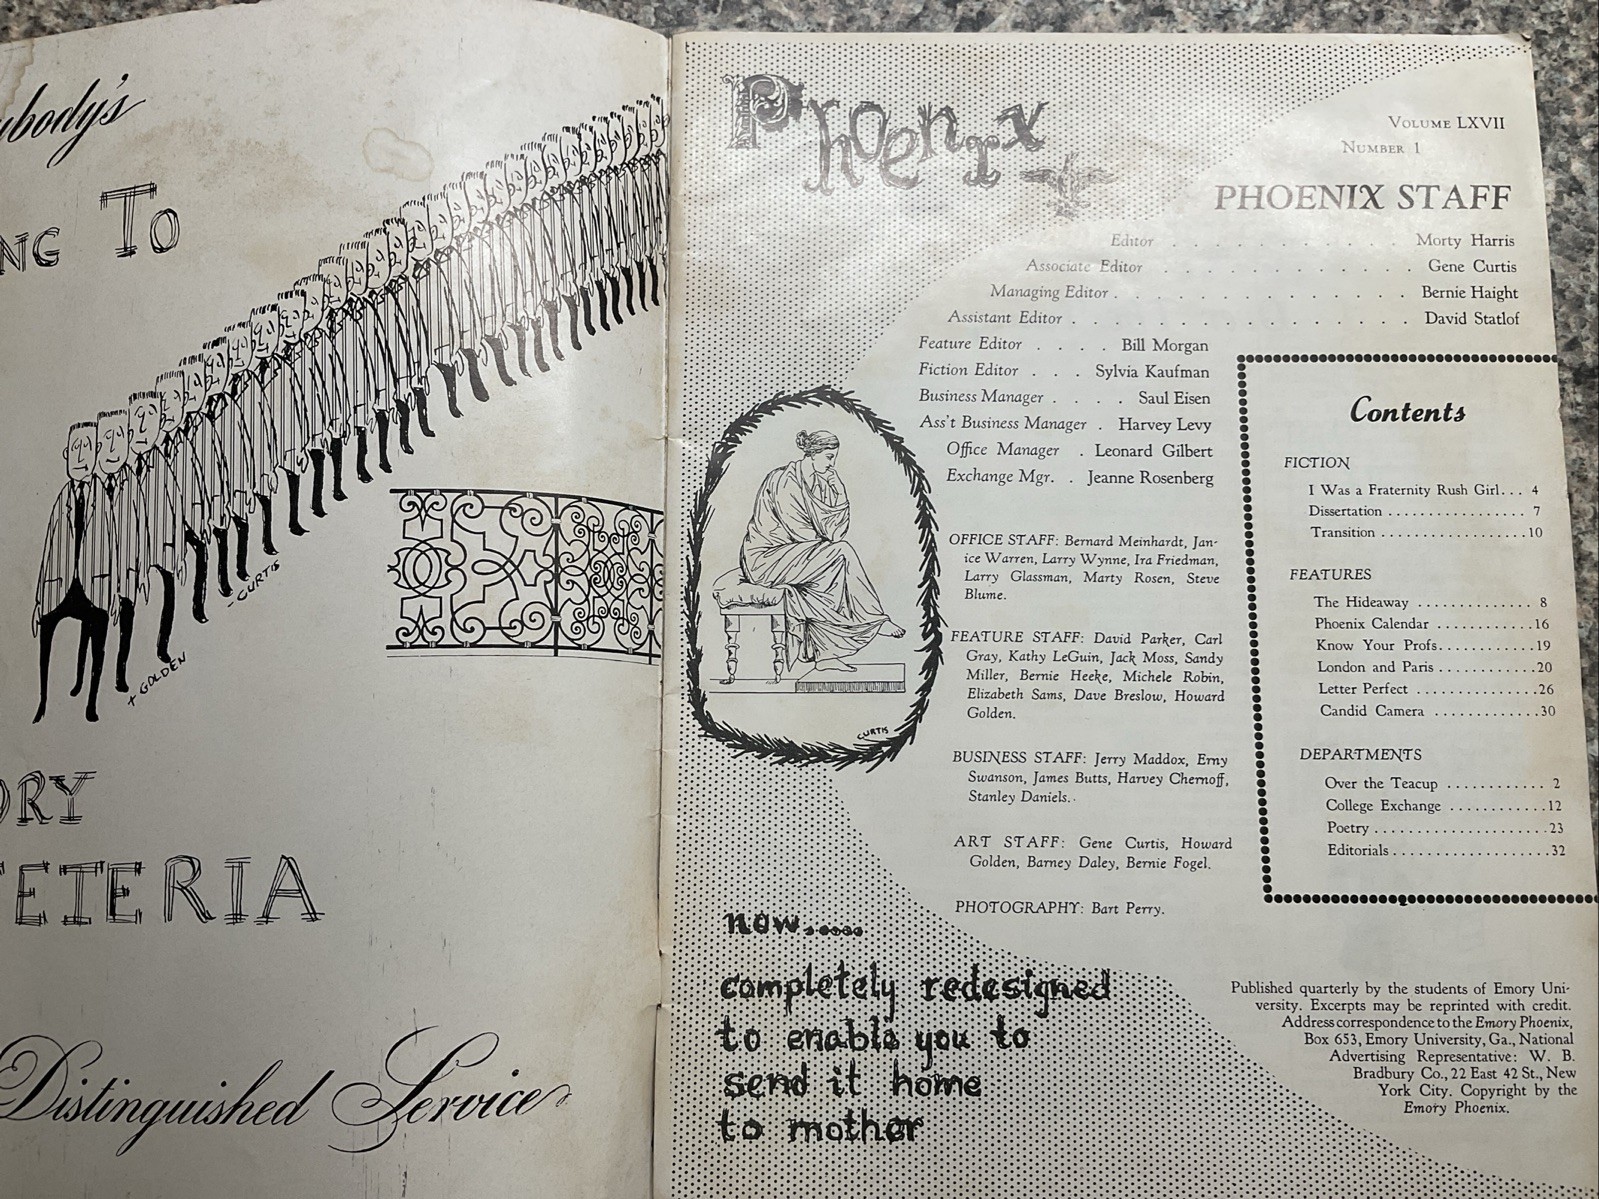 ybody's
NG TO
- CURTIS
+ GOLDEN
ORY
ETERIA
Distinguished Service
Phoenix
VOLUME LXVII
NUMBER 1
PHOENIX STAFF
Editor . . . . . . . . . . . Morty Harris
Associate Editor . . . . . . . . . . . Gene Curtis
Managing Editor . . . . . . . . . . . . . Bernie Haight
Assistant Editor . . . . . . . . . . . . . . . David Statlof
Feature Editor . . . . Bill Morgan
Fiction Editor . . . Sylvia Kaufman
Business Manager . . . . Saul Eisen
Ass't Business Manager . Harvey Levy
Office Manager . Leonard Gilbert
Exchange Mgr. . Jeanne Rosenberg
OFFICE STAFF: Bernard Meinhardt, Jan-
ice Warren, Larry Wynne, Ira Friedman,
Larry Glassman, Marty Rosen, Steve
Blume.
FEATURE STAFF: David Parker, Carl
Gray, Kathy LeGuin, Jack Moss, Sandy
Miller, Bernie Heeke, Michele Robin,
Elizabeth Sams, Dave Breslow, Howard
Golden.
CURTIS
BUSINESS STAFF: Jerry Maddox, Erny
Swanson, James Butts, Harvey Chernoff,
Stanley Daniels.
ART STAFF: Gene Curtis, Howard
Golden, Barney Daley, Bernie Fogel.
PHOTOGRAPHY: Bart Perry.
now.....
completely redesigned
to enable you to
send it home
to mother
Contents
FICTION
I Was a Fraternity Rush Girl... 4
Dissertation ................ 7
Transition .................10
FEATURES
The Hideaway .............. 8
Phoenix Calendar ............16
Know Your Profs............19
London and Paris .............20
Letter Perfect ..............26
Candid Camera .............30
DEPARTMENTS
Over the Teacup ............ 2
College Exchange ...........12
Poetry .....................23
Editorials ...................32
Published quarterly by the students of Emory Uni-
versity. Excerpts may be reprinted with credit.
Address correspondence to the Emory Phoenix,
Box 653, Emory University, Ga., National
Advertising Representative: W. B.
Bradbury Co., 22 East 42 St., New
York City. Copyright by the
Emory Phoenix.